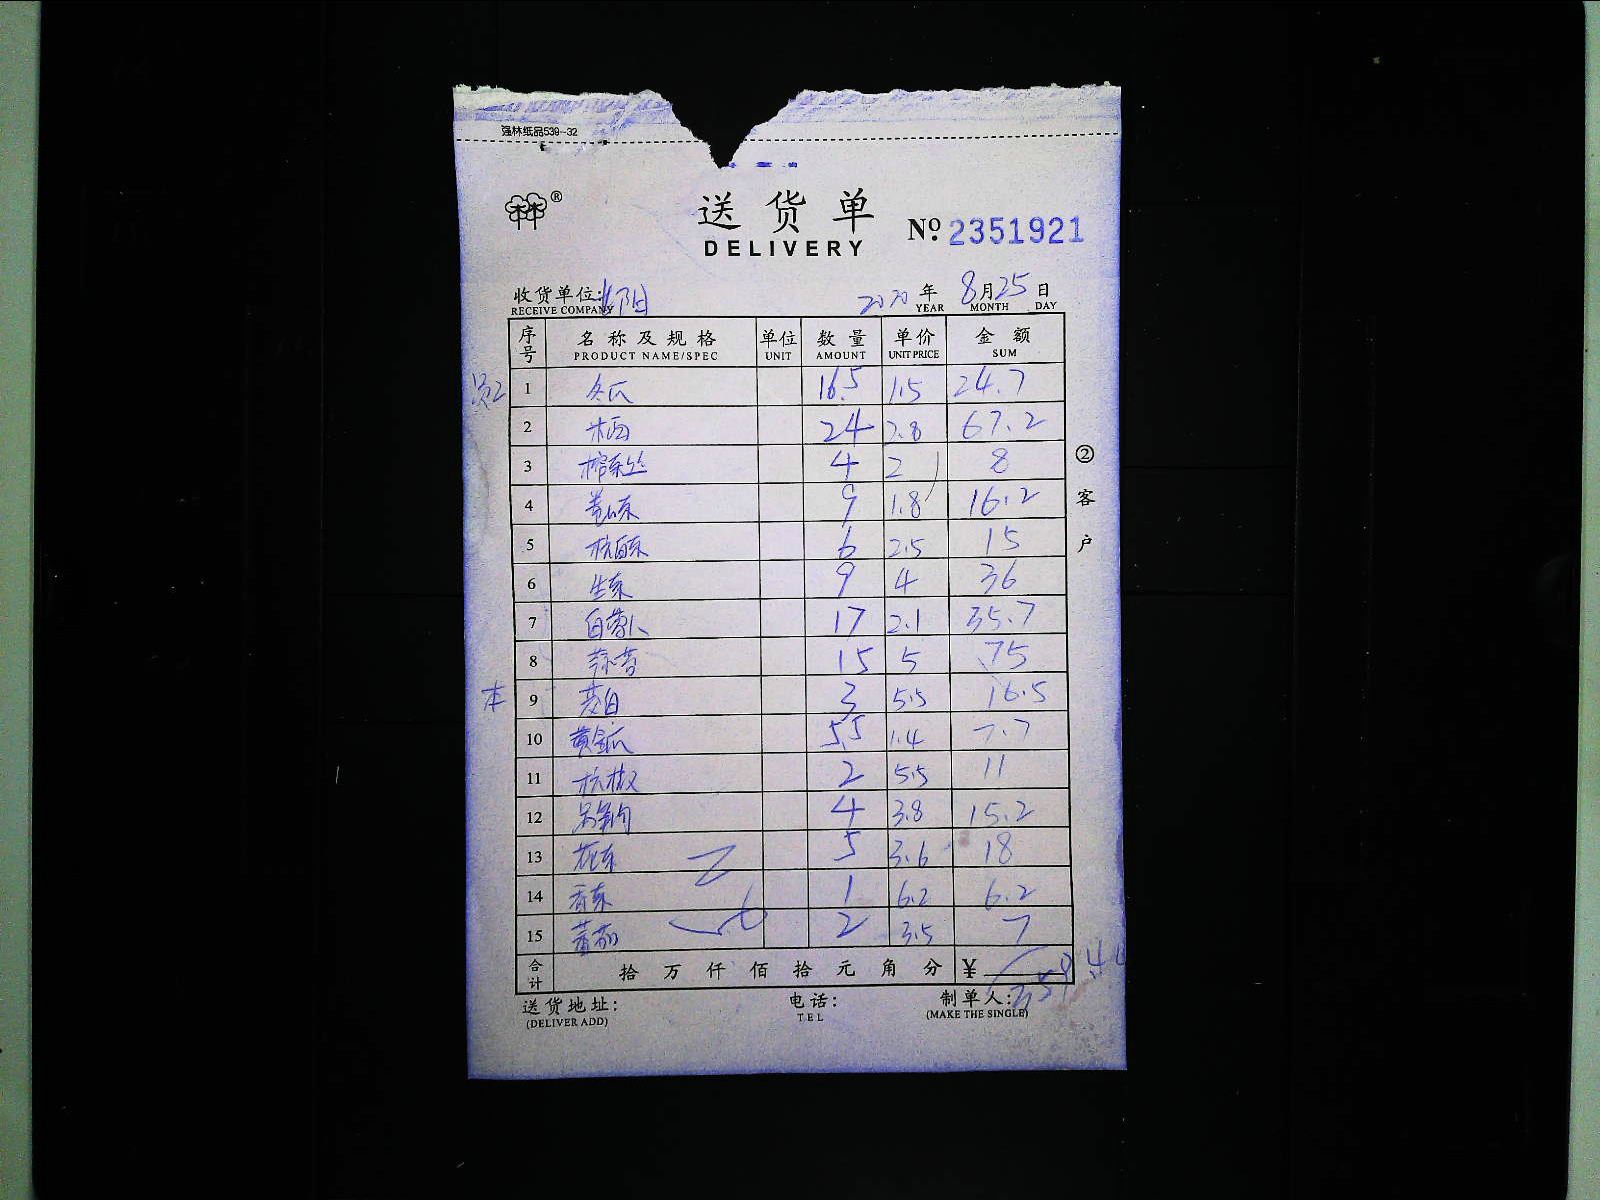 强林纸品539-32
林®
送货单
DELIVERY
No. 2351921
收货单位: 阳 2020年 8月25日
RECEIVE COMPANY YEAR MONTH DAY
序号 名称及规格 单位 数量 单价 金额
PRODUCT NAME/SPEC UNIT AMOUNT UNIT PRICE SUM
员工 1 冬瓜 16.5 1.5 24.7
2 木西 24 2.8 67.2
3 榨菜丝 4 2 8
4 卷心菜 9 1.8 16.2
5 杭白菜 6 2.5 15
6 生菜 9 4 36
7 白萝卜 17 2.1 35.7
8 蒜苔 15 5 75
本 9 茭白 3 5.5 16.5
10 黄金瓜 5.5 1.4 7.7
11 杭椒 2 5.5 11
12 4 3.8 15.2
13 花菜 5 3.6 18
14 香菜 1 6.2 6.2
15 番茄 2 3.5 7
合计 拾万仟佰拾元角分 ¥ 359.40
送货地址: 电话: 制单人:
(DELIVER ADD) TEL (MAKE THE SINGLE)
②客户